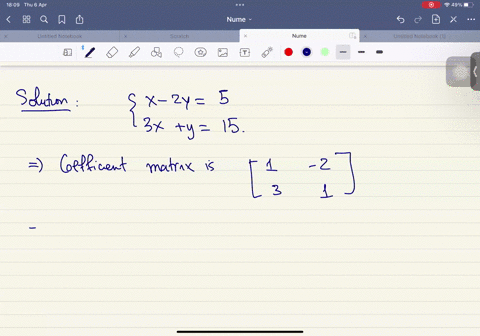 18:09 Thu 6 Apr
49%
Nume
Untitled Notebook
Nume
Untitled Notebook (1)
Solution: x - 2y = 5
3x + y = 15.
=> Coefficient matrix is [ 1 -2
3 1 ]
-